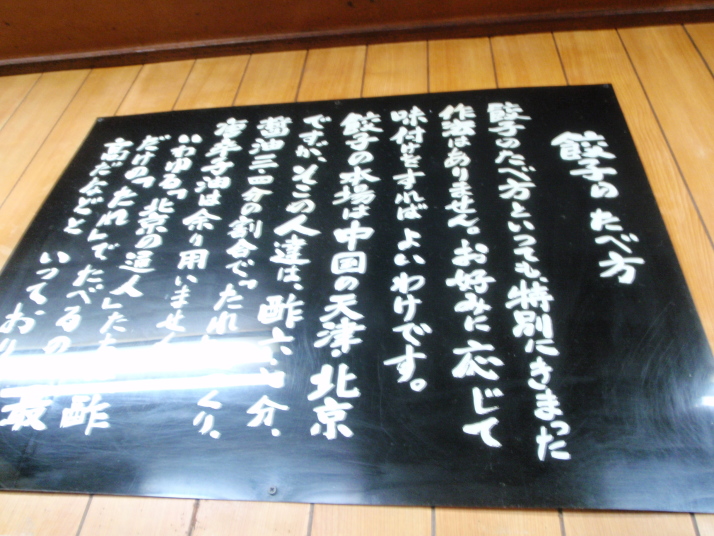 餃子のたべ方
餃子のたべ方といっても、特別にきまった
作法はありません。お好みに応じて
味付けをすればよいわけです。
餃子の本場は中国の天津・北京
ですが、そこの人達は、酢六、四分、
醤油三、四分の割合で。たれ くり、
唐辛子油は余り用いません
いわゆる「北京の通人」た 酢
だけの「たれ」でたべるの 最
高だなどと いって、おり